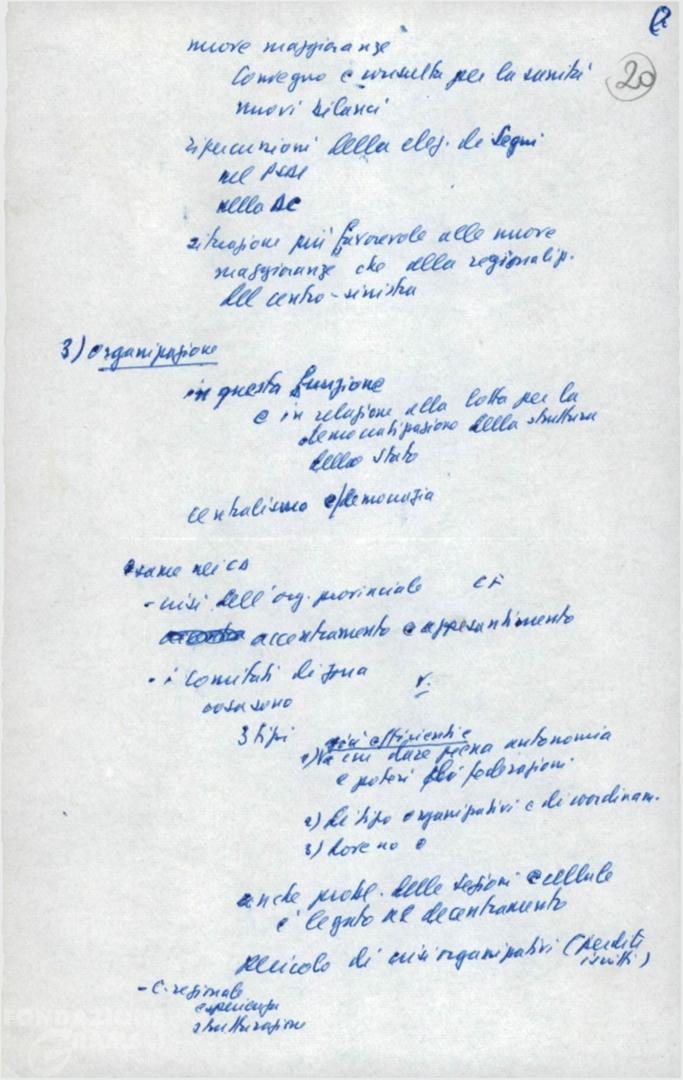 20
nuove maggioranze
Convegno e consulta per la sanità
nuovi bilanci
ripercussioni della elez. di Segni
nel PSDI
nella DC
situazione più favorevole alle nuove
maggioranze che alla
del centro-sinistra
3) organizzazione
in questa funzione
e in relazione alla lotta per la
democratizzazione della struttura
dello stato
centralismo e/democrazia
esame nei CD
- crisi dell'org. provinciale CF
accentramento e appesantimento
- i Comitati di zona
cosa sono
3 tipi
più efficienti e
1) a cui dare piena autonomia
e poteri federazioni
2) di tipo organizzativi e di coordinam.
3) dove no
anche probl. delle sezioni e cellule
è legato al decentramento
pericolo di crisi organizzativi (perdita
iscritti)
- C. regionale
esperienza
strutturazione
FONDAZIONE
GRAMSCI